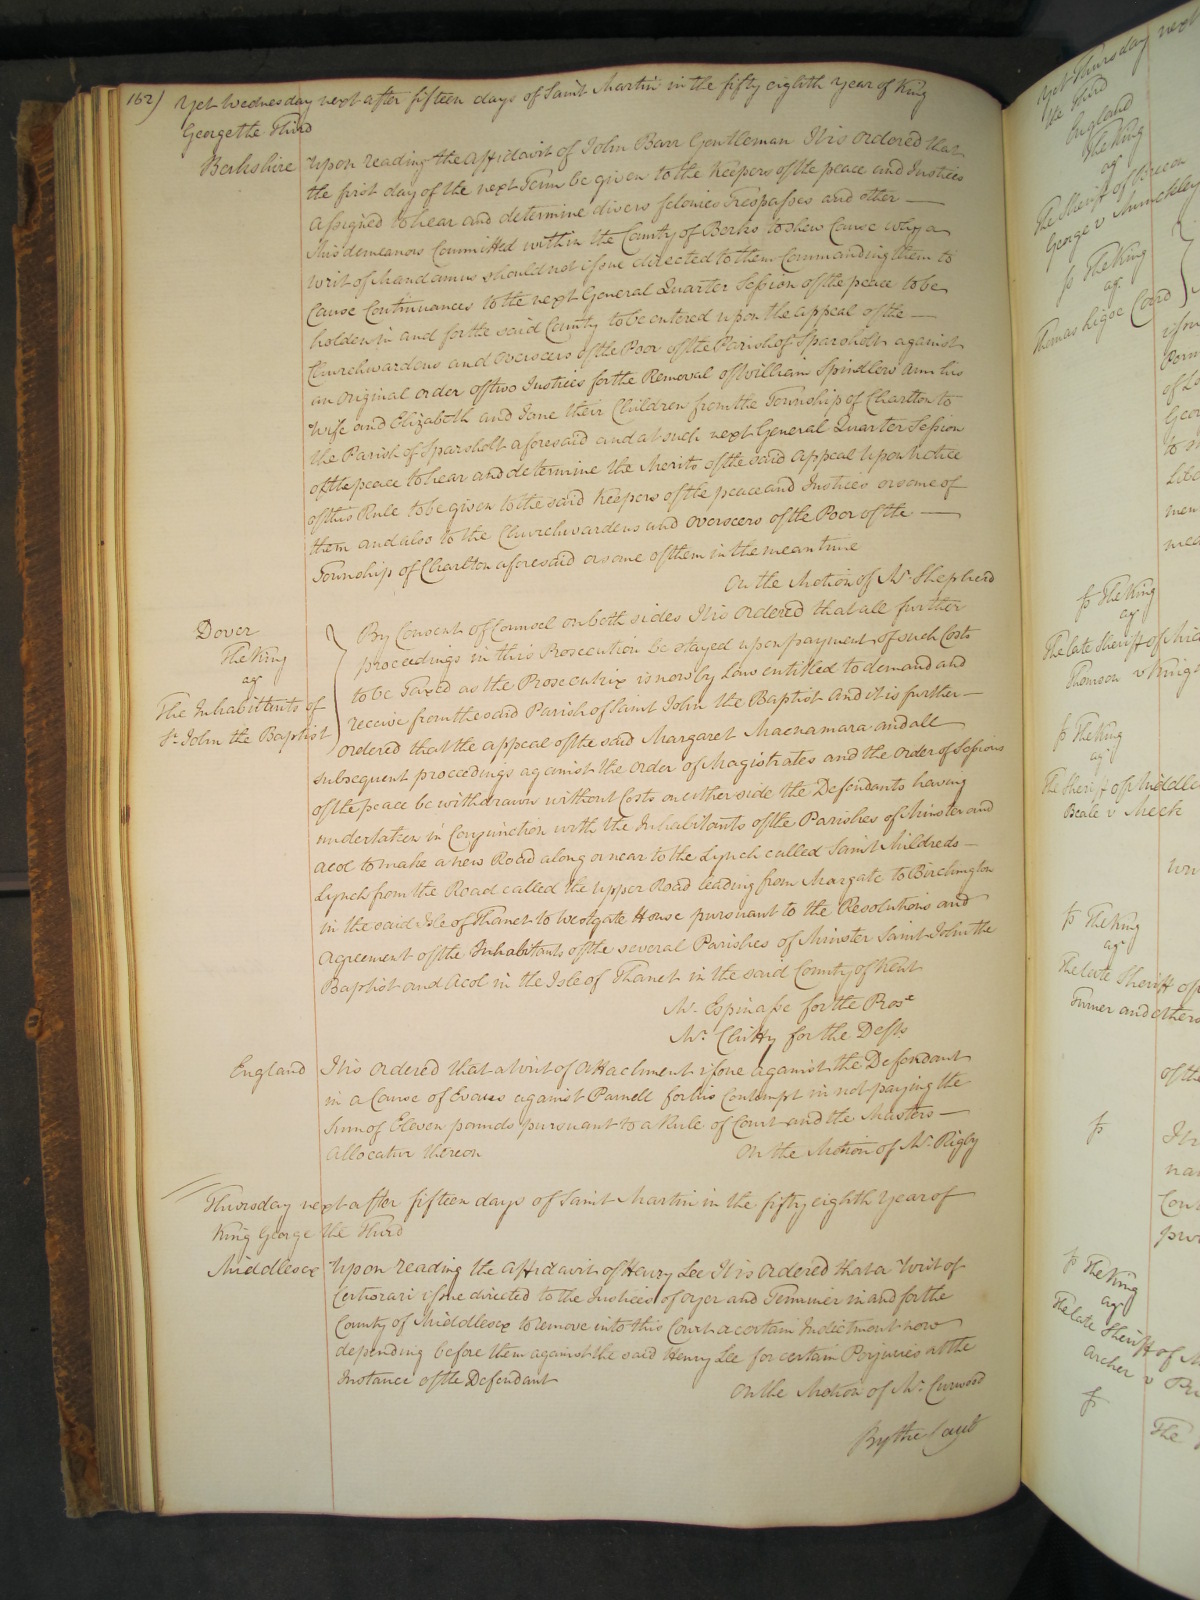 162)
Yet Wednesday next after fifteen days of Saint Martin in the fifty eighth year of King
George the Third
Berkshire
Upon reading the affidavit of John Barr Gentleman It is ordered that
the first day of the next Term be given to the Keepers of the peace and Justices
assigned to hear and determine divers felonies Trespasses and other —
Misdemeanors Committed within the County of Berks to shew Cause why a
Writ of Mandamus should not issue directed to them Commanding them to
Cause Continuances to the next General Quarter Session of the peace to be
holden in and for the said County to be entered upon the appeal of the —
Churchwardens and Overseers of the Poor of the Parish of Sparsholt against
an original order of two Justices for the Removal of William Spindlers Ann his
wife and Elizabeth and Jane their Children from the Township of Charlton to
the Parish of Sparsholt aforesaid and at such next General Quarter Session
of the peace to hear and determine the Merits of the said Appeal Upon Notice
of this Rule to be given to the said Keepers of the peace and Justices or some of
them and also to the Churchwardens and Overseers of the Poor of the —
Township of Charlton aforesaid or some of them in the mean time
On the Motion of Mr. Shepherd
Dover
The King
agt
The Inhabitants of
St. John the Baptist
By Consent of Counsel on both sides It is ordered that all further
proceedings in this Prosecution be stayed upon payment of such Costs
to be Taxed as the Prosecutrix is now by Law entitled to demand and
receive from the said Parish of Saint John the Baptist And it is further —
ordered that the appeal of the said Margaret Macnamara and all
subsequent proceedings against the order of Magistrates and the order of Sessions
of the peace be withdrawn without Costs on either side the Defendants having
undertaken in Conjunction with the Inhabitants of the Parishes of Minster and
Acol to make a new Road along or near to the Lynch called Saint Mildreds —
Lynch from the Road called the upper Road leading from Margate to Birchington
in the said Isle of Thanet to Westgate House pursuant to the Resolutions and
agreement of the Inhabitants of the several Parishes of Minster Saint John the
Baptist and Acol in the Isle of Thanet in the said County of Kent
Mr. Espinasse for the Prose
Mr. Chitty for the Defts.
England
It is ordered that a Writ of Attachment issue against the Defendant
in a Cause of Evans against Parnell for his Contempt in not paying the
Sum of Eleven pounds pursuant to a Rule of Court and the Masters —
Allocatur thereon
On the Motion of Mr. Rigby
Thursday next after fifteen days of Saint Martin in the fifty eighth Year of
King George the Third
Middlesex
Upon reading the affidavit of Henry Lee It is ordered that a Writ of
Certiorari issue directed to the Justices of oyer and Terminer in and for the
County of Middlesex to remove into this Court a certain Indictment now
depending before them against the said Henry Lee for certain Perjuries at the
Instance of the Defendant
On the Motion of Mr. Curwood
By the Court
Yet Thursday next
the Third
England
The King
agt
The Sheriff of
George v
The King
agt
Thomas
The King
agt
The late Sheriff of Mid
Thomson v Kings
The King
agt
The Sheriff of Middle
Beale v Meek
The King
agt
The late Sheriff of
Turner and others
of the
It is
The King
agt
The late Sheriff of M
Archer v
The